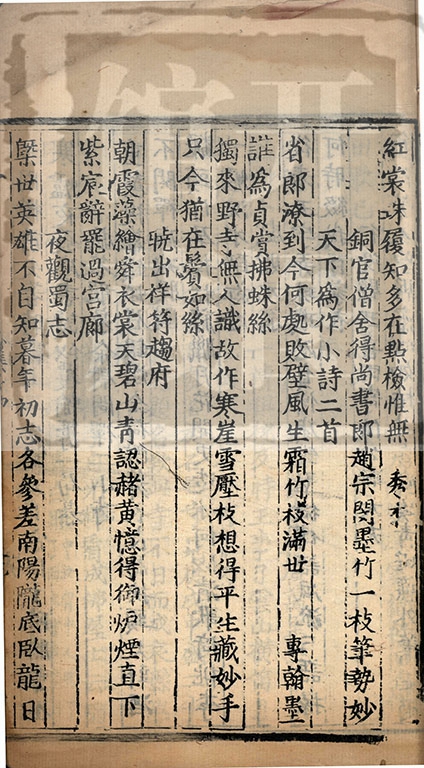 紅裳珠履知多在點檢惟無
銅官僧舍得尚書郎趙宗閔墨竹一枝筆勢妙
天下為作小詩二首
省郎潦到今何處敗壁風生霜竹枝滿世專翰墨
誰為貞賞拂蛛絲
獨來野寺無人識故作寒崖雪壓枝想得平生藏妙手
只今猶在鬢如絲
曉出祥符趨府
朝霞藻繪舜衣裳天碧山青認赭黃憶得御炉煙直下
紫宸辭罷過宮廊
夜觀蜀志
槩世英雄不自知暮年初志各參差南陽隴底臥龍日